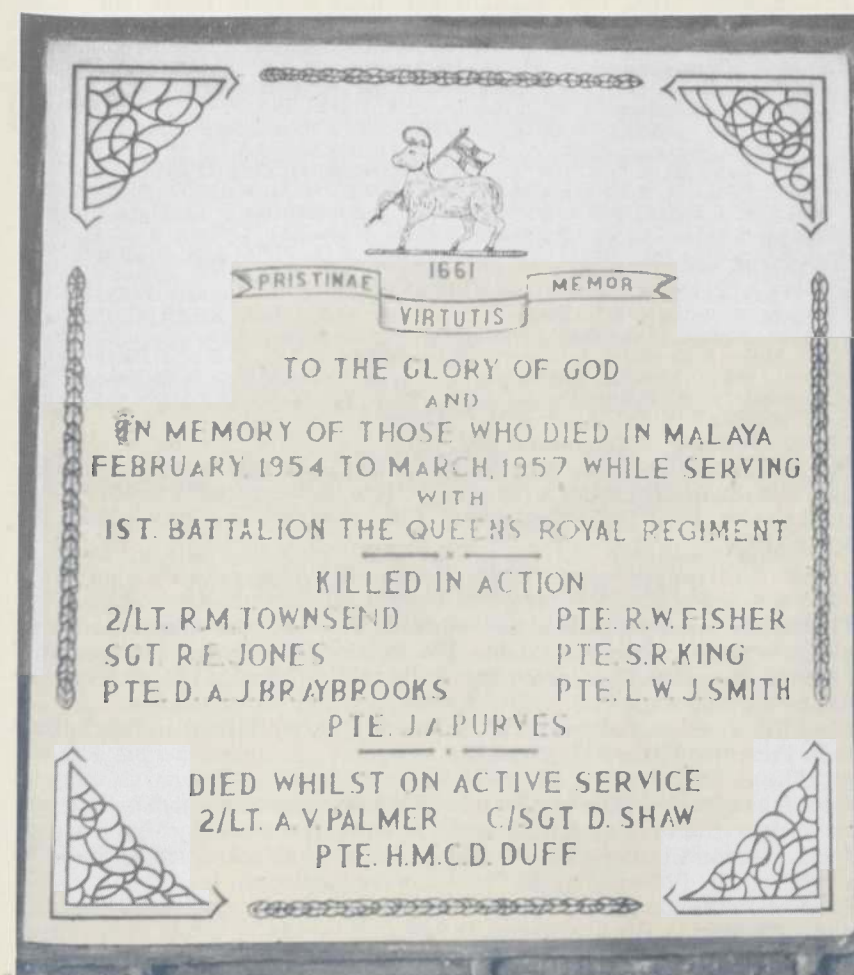 1661
PRISTINAE VIRTUTIS MEMOR
TO THE GLORY OF GOD
AND
IN MEMORY OF THOSE WHO DIED IN MALAYA
FEBRUARY, 1954 TO MARCH, 1957 WHILE SERVING
WITH
1ST. BATTALION THE QUEENS ROYAL REGIMENT
KILLED IN ACTION
2/LT. R.M. TOWNSEND PTE. R.W. FISHER
SGT R.E. JONES PTE. S.R. KING
PTE. D. A. J. BRAYBROOKS PTE. L. W. J. SMITH
PTE. J. A. PURVES
DIED WHILST ON ACTIVE SERVICE
2/LT. A.V. PALMER C/SGT D. SHAW
PTE. H.M.C.D. DUFF